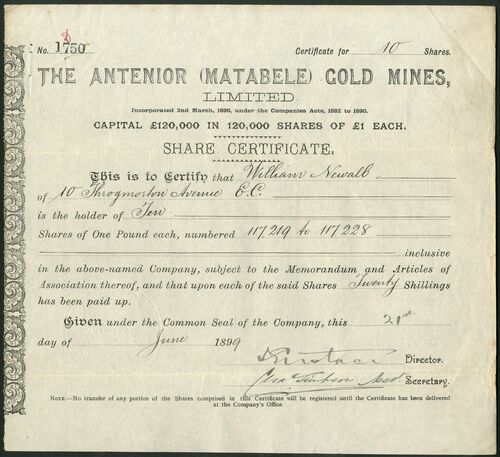 No. 1750
Certificate for 10 Shares.
THE ANTENIOR (MATABELE) GOLD MINES,
LIMITED.
Incorporated 2nd March, 1896, under the Companies Acts, 1862 to 1890.
CAPITAL £120,000 IN 120,000 SHARES OF £1 EACH.
SHARE CERTIFICATE.
This is to Certify that William Newall
of 10 Throgmorton Avenue E.C.
is the holder of Ten
Shares of One Pound each, numbered 117219 to 117228
inclusive
in the above-named Company, subject to the Memorandum and Articles of
Association thereof, and that upon each of the said Shares Twenty Shillings
has been paid up.
Given under the Common Seal of the Company, this 21st
day of June 1899
Director.
Secretary.
NOTE.—No transfer of any portion of the Shares comprised in this Certificate will be registered until the Certificate has been delivered
at the Company's Office.